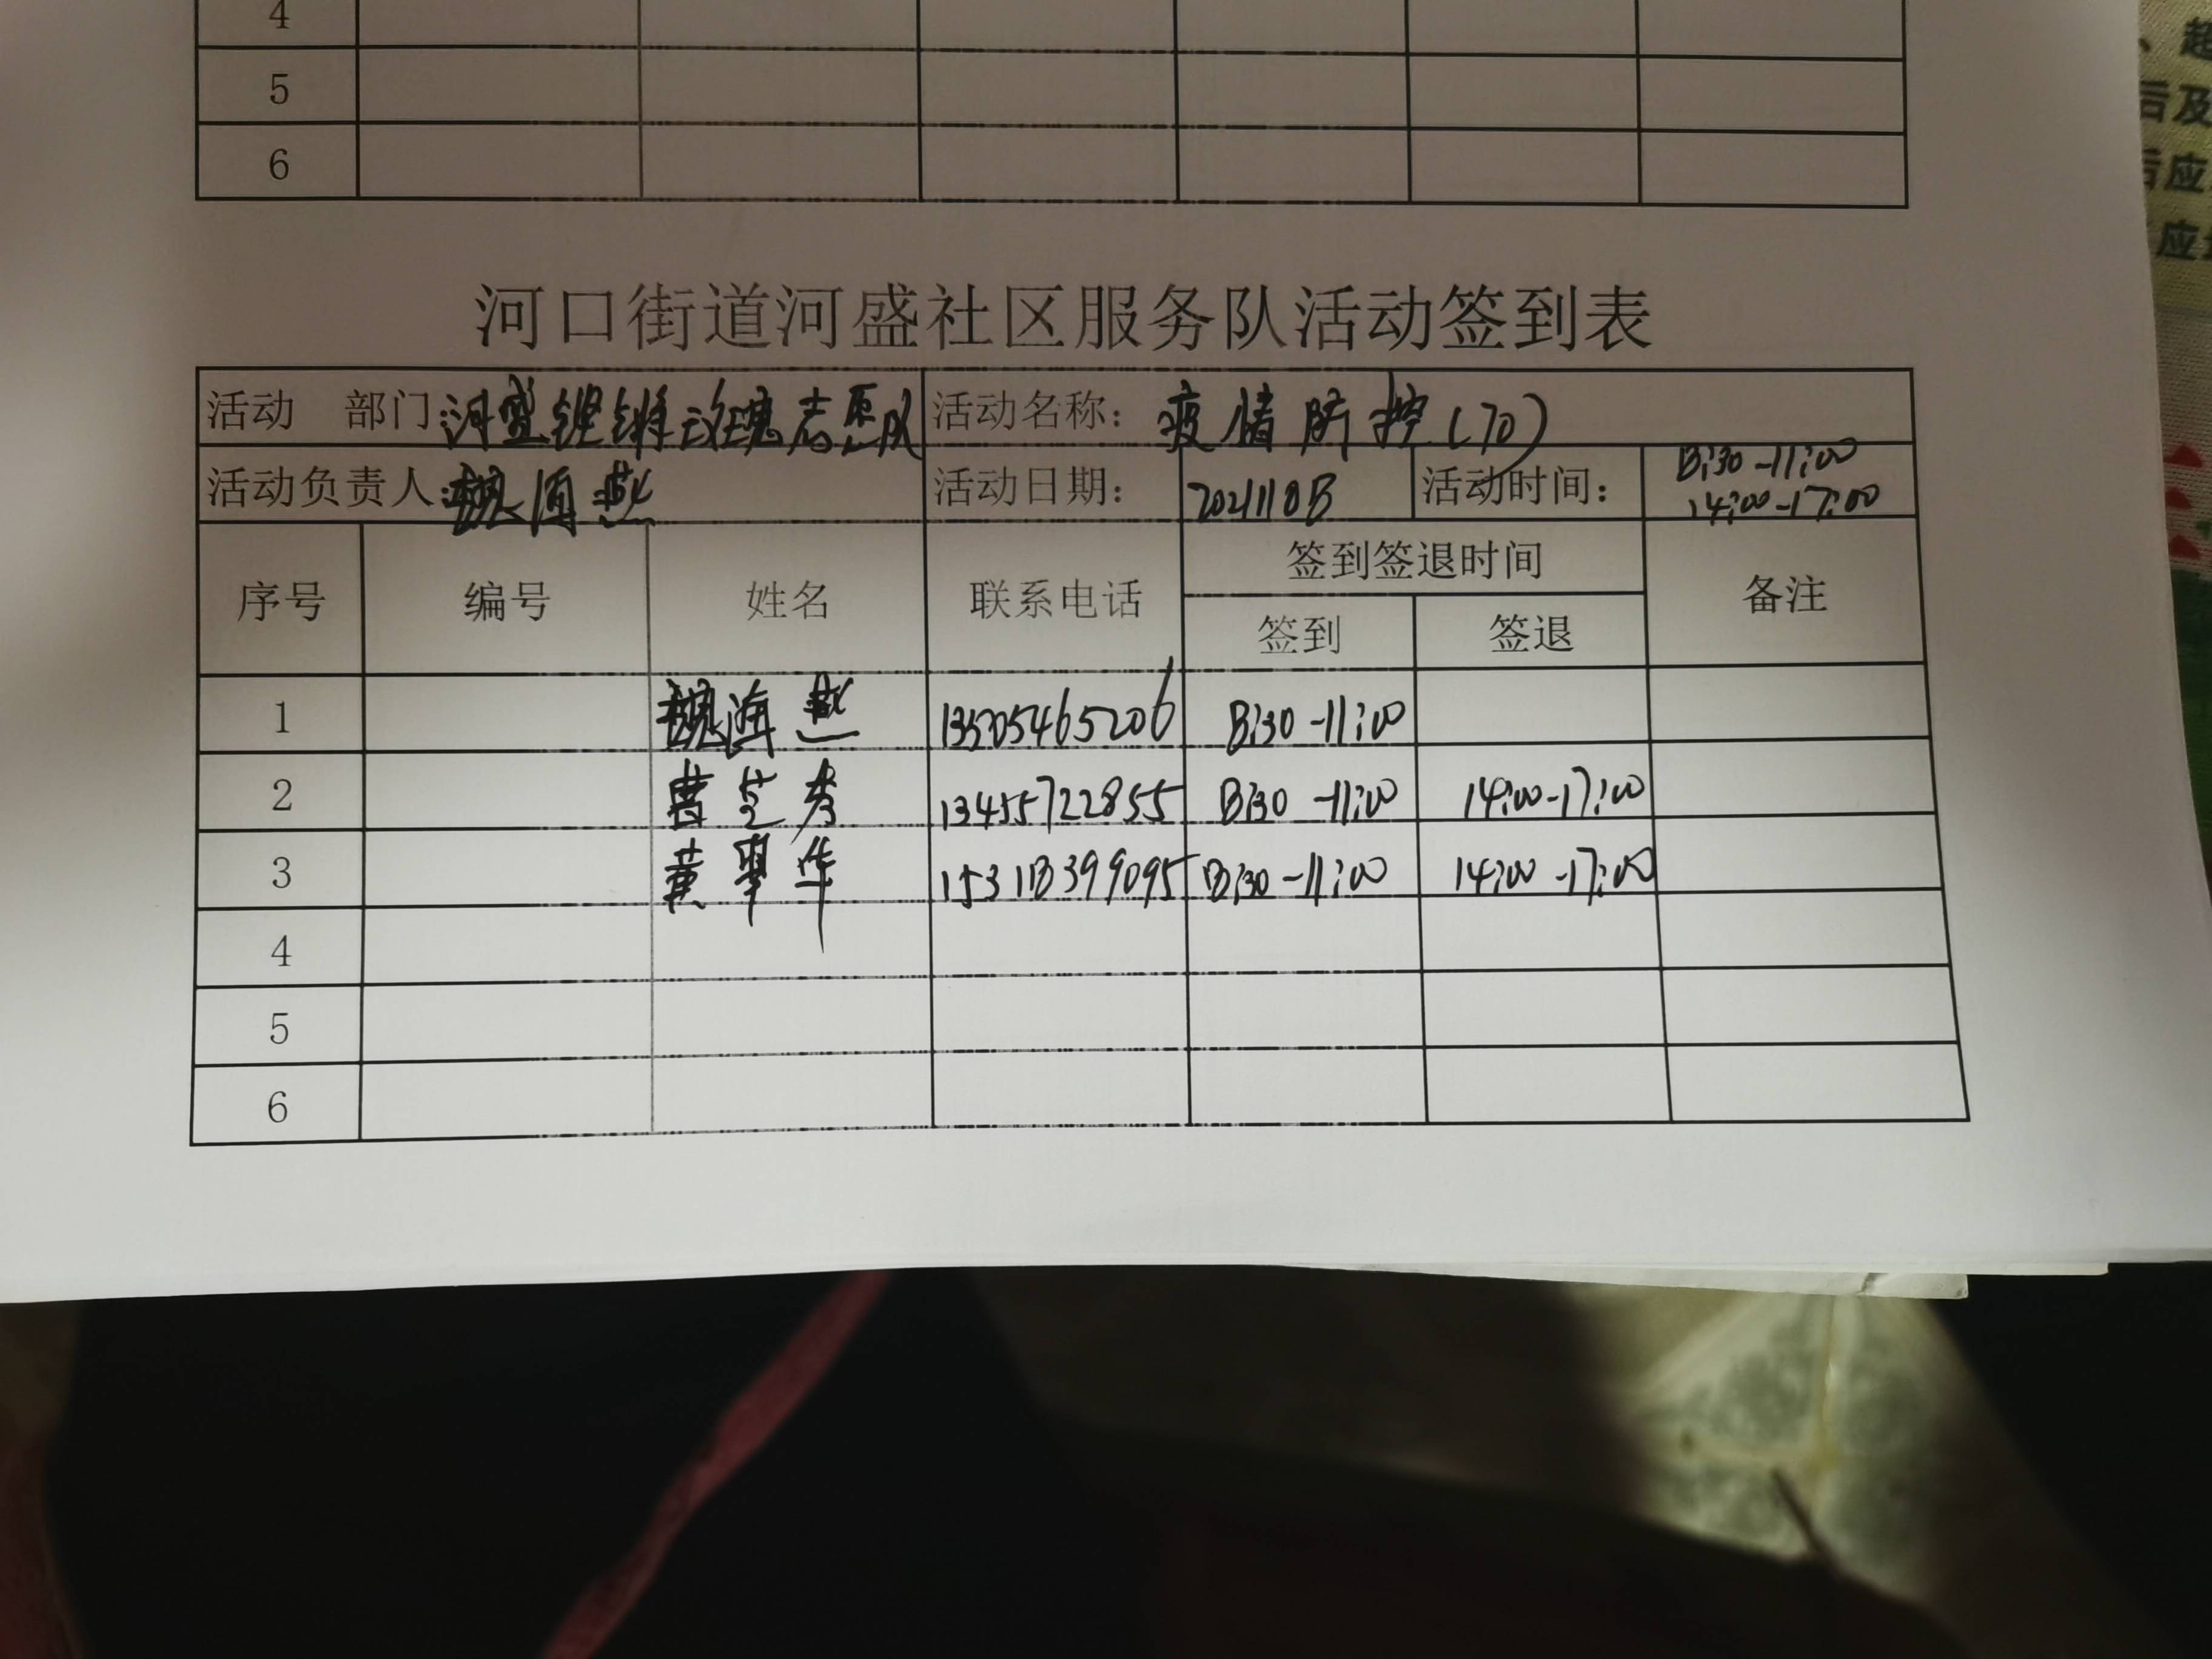 4
5
6
、超
后及
后应
应
河口街道河盛社区服务队活动签到表
活动 部门:河盛铿锵玫瑰志愿队 活动名称: 疫情防控(70)
活动负责人:魏海燕 活动日期: 2021108 活动时间: 8:30-11:00
14:00-17:00
序号 编号 姓名 联系电话 签到签退时间 备注
签到 签退
1 魏海燕 13505465206 8:30-11:00
2 曹芝秀 13455722855 8:30-11:00 14:00-17:00
3 黄翠华 15318399095 8:30-11:00 14:00-17:00
4
5
6